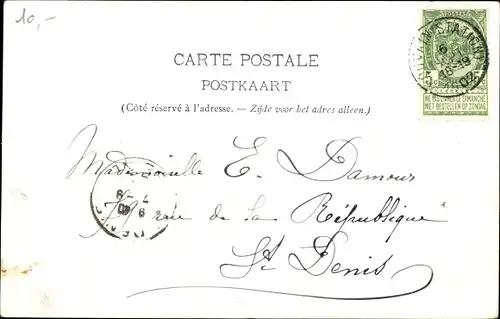 10,-
CARTE POSTALE
POSTKAART
(Côté réservé à l'adresse. — Zijde voor het adres alleen.)
NE PAS LIVRER LE DIMANCHE
NIET BESTELLEN OP ZONDAG
Mademoiselle E. Damour
rue de la République
St Denis